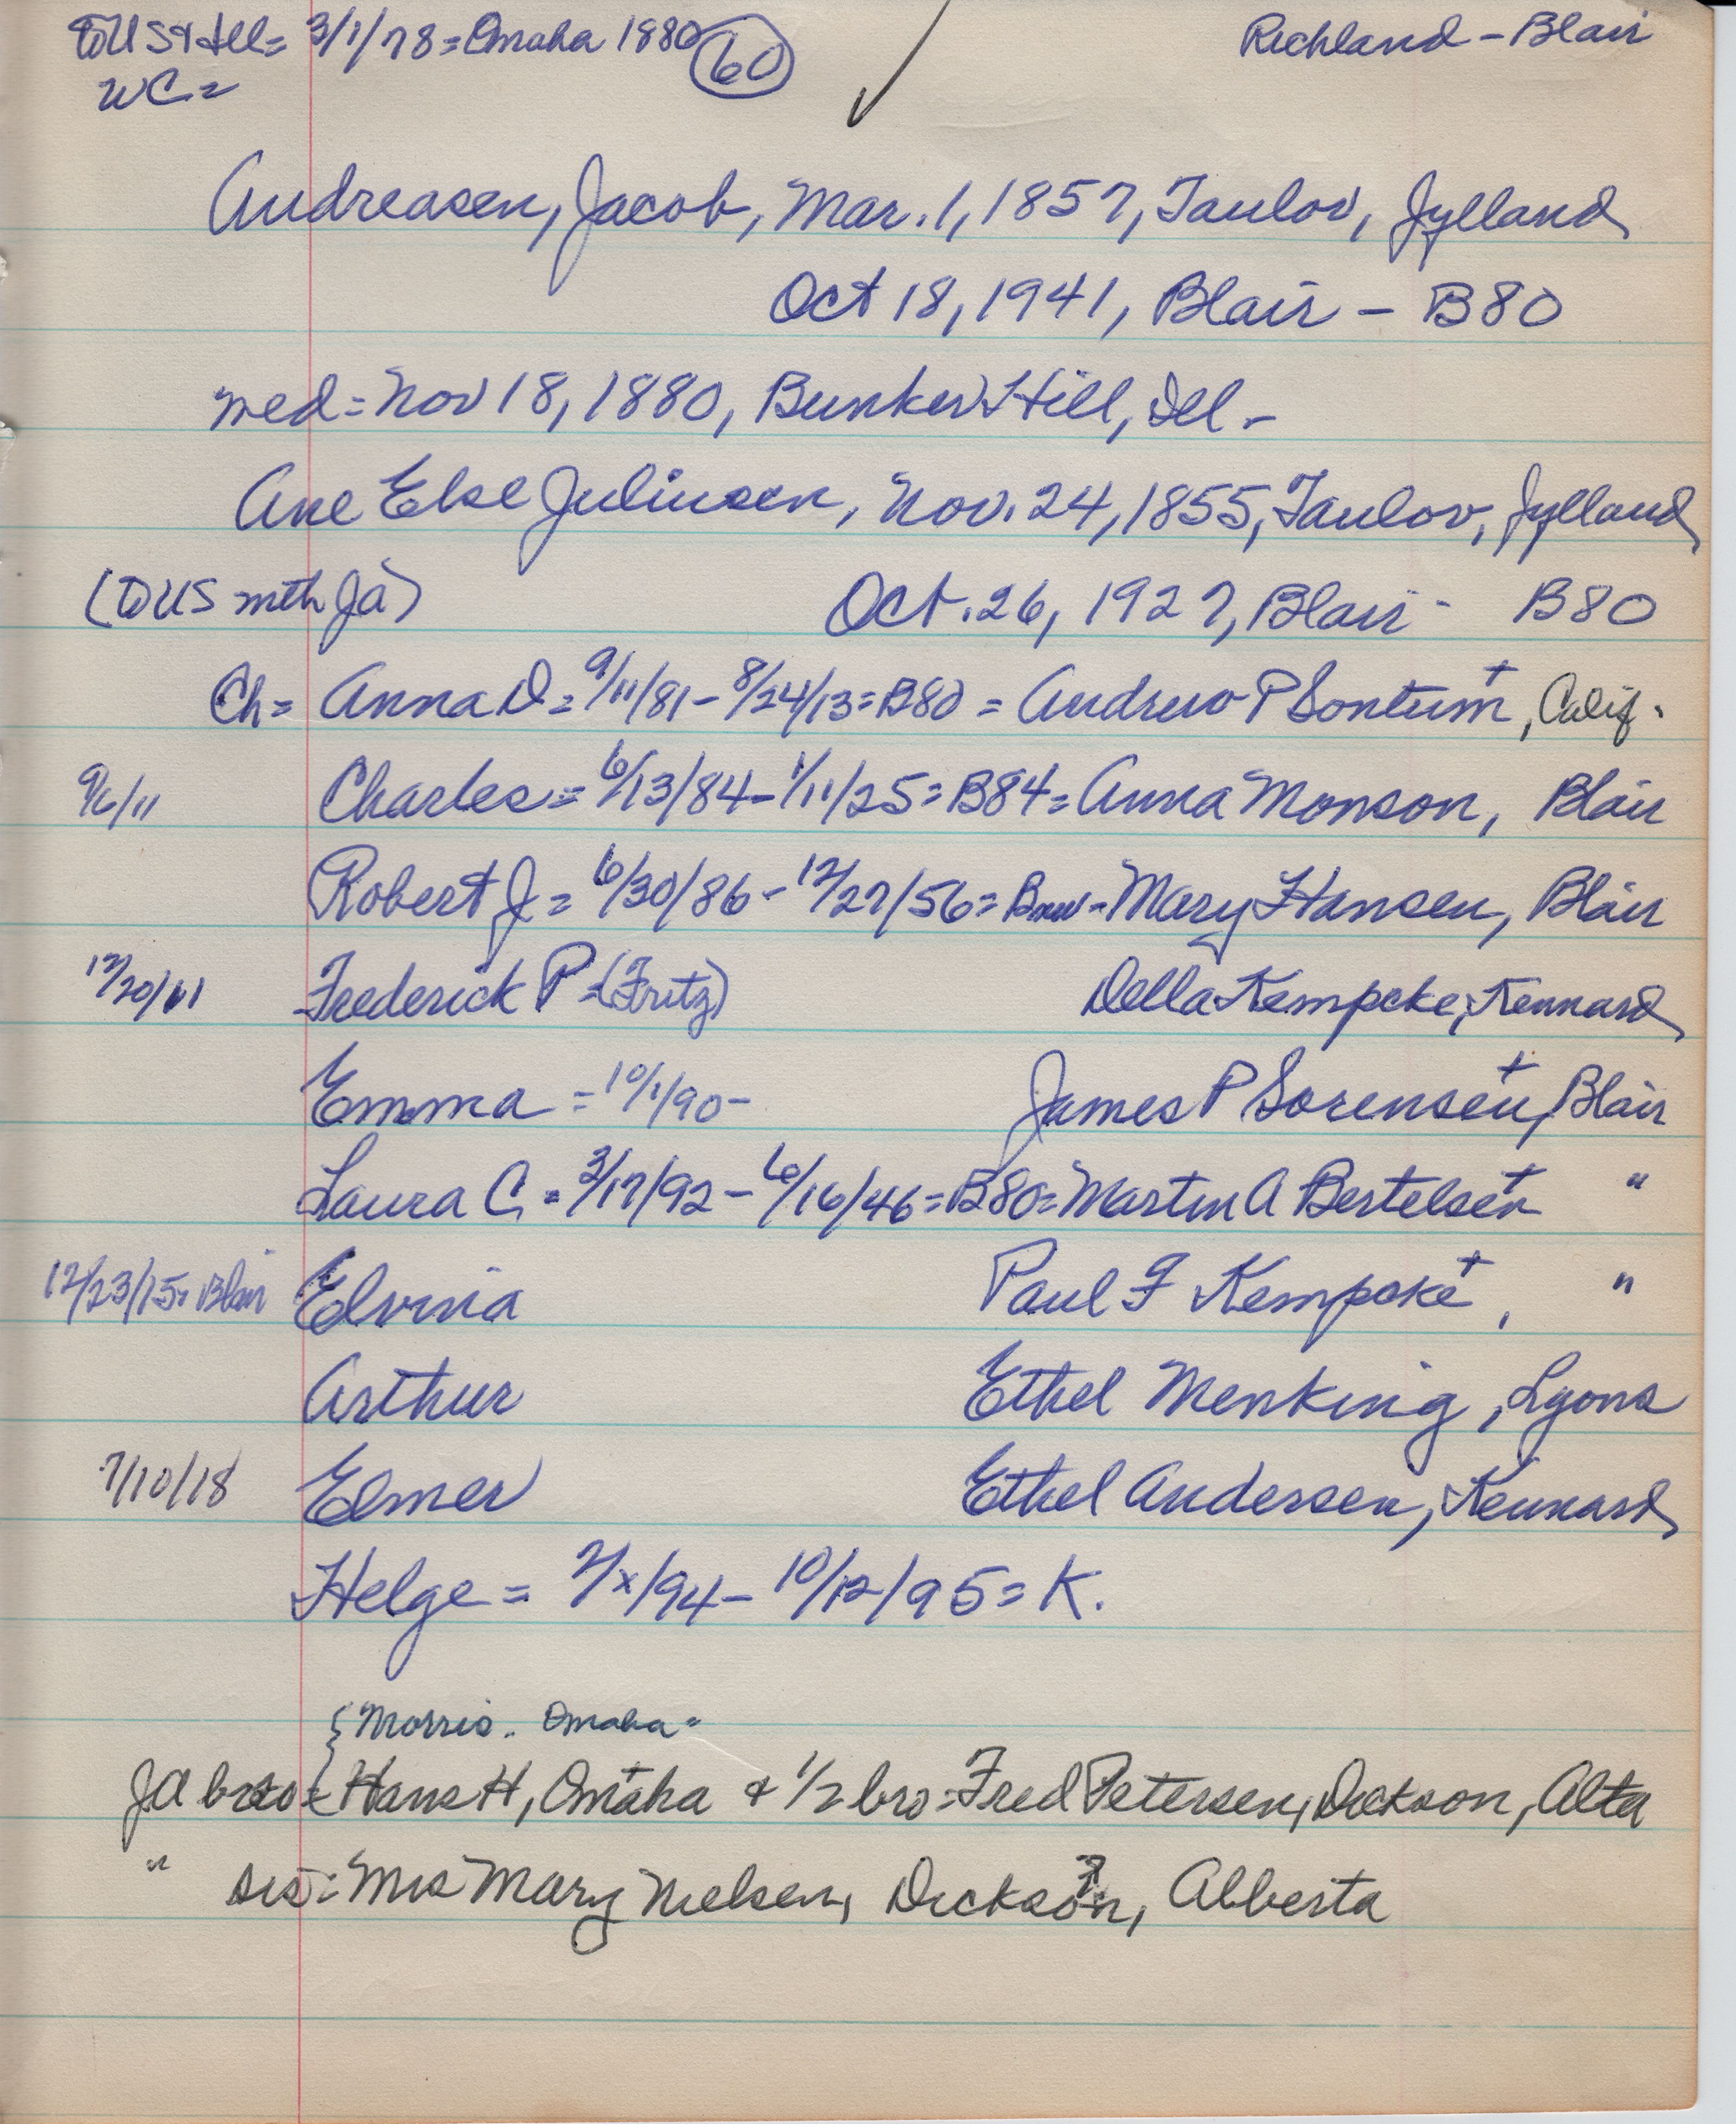 to US & Ill = 3/1/78 = Omaha 1880 60 Richland - Blair
WC =
Andreasen, Jacob, Mar. 1, 1857, Taulov, Jylland
Oct 18, 1941, Blair - B80
wed = Nov 18, 1880, Bunker Hill, Ill -
Ane Else Juliusen, Nov. 24, 1855, Taulov, Jylland
(to US with JA) Oct. 26, 1927, Blair - B80
Ch = Anna D = 9/11/81 - 8/24/13 = B80 = Andrew P Sontum +, Calif.
9/6/11 Charles = 6/13/84 - 1/11/25 = B84 = Anna Monson, Blair
Robert J = 6/30/86 - 12/27/56 = Bnew - Mary Hansen, Blair
12/20/11 Frederick P - (Fritz) Della Kempcke, Kennard
Emma = 10/1/90 - James P Sorensen +, Blair
Laura C. = 3/17/92 - 6/16/46 = B80 = Martin A Bertelsen + "
12/23/15 = Blair Elvina Paul F Kempcke +, "
Arthur Ethel Menking, Lyons
7/10/18 Elmer Ethel Andersen, Kennard
Helge = 7/x/94 - 10/12/95 = K.
{ Morris. Omaha -
JA bros { Hans H, Omaha + & 1/2 bro = Fred Petersen, Dickson, Alta
" sis: Mrs Mary Nielsen, Dickson, Alberta